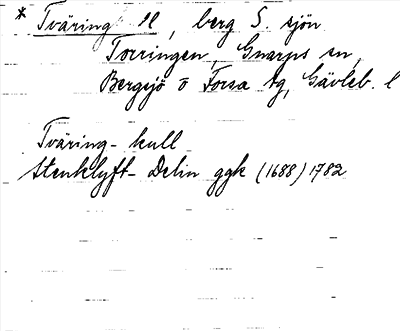 * Tväring, berg S. sjön
Torringen, Gnarps sn,
Bergsjö o Forsa tg, Gävleb. l
Tväring- kull
Stenklyft- Delin ggk (1688) 1782